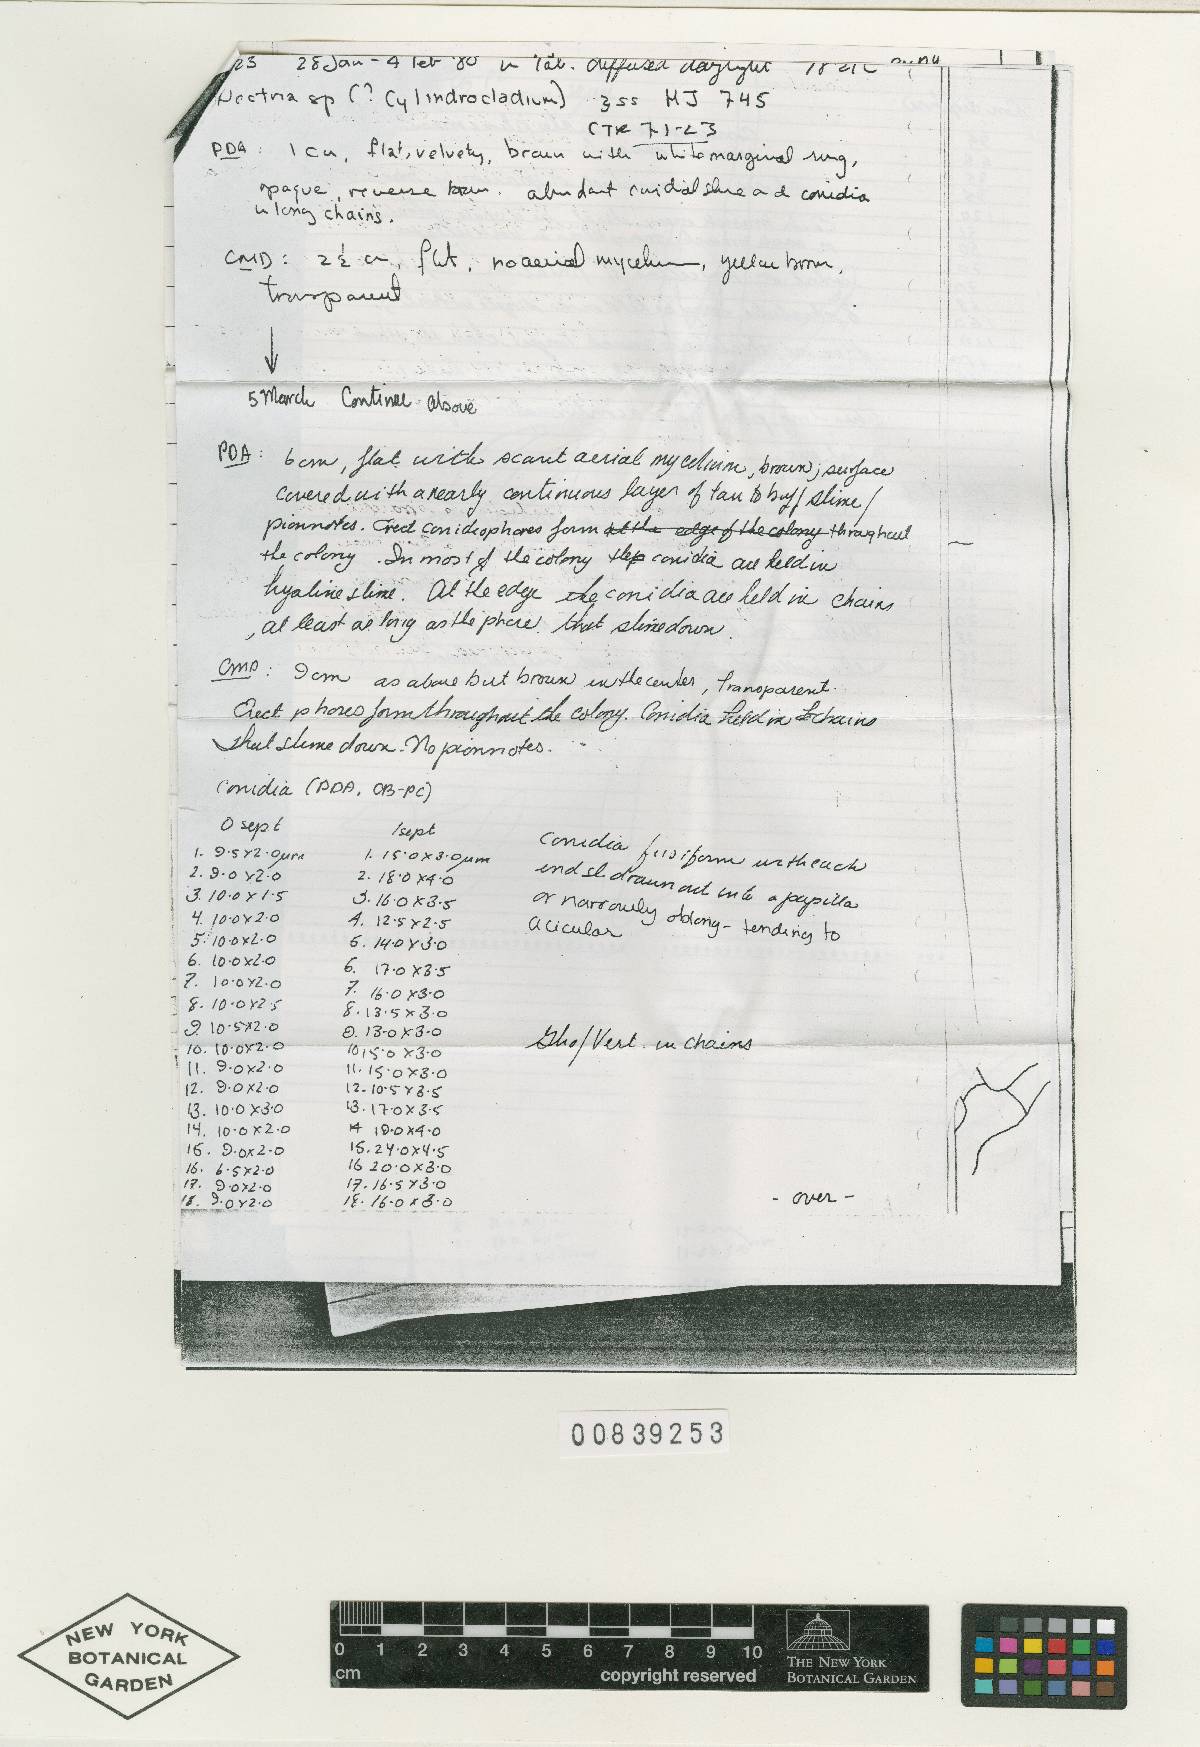 23 28 Jan - 4 Feb '80 in lab. diffused daylight 18-21C
Nectria sp (? Cylindrocladium) 3ss MJ 745
CTR 71-23
PDA: 1 cm, flat, velvety, brown with white marginal ring,
opaque, reverse brown. abundant conidial slime and conidia
in long chains.
CMD: 2½ cm, flat, no aerial mycelium, yellow brown,
transparent
↓
5 March Continue above
PDA: 6cm, flat with scant aerial mycelium, brown; surface
covered with a nearly continuous layer of tan to buff slime/
pionnotes. Erect conidiophores form at the edge of the colony throughout
the colony. In most of the colony the conidia are held in
hyaline slime. At the edge the conidia are held in chains
, at least as long as the phore. that slime down.
CMD: 9cm as above but brown in the center, transparent.
Erect phores form throughout the colony. Conidia held in chains
that slime down. No pionnotes.
Conidia (PDA, OB-PC)
0 sept 1 sept
1. 9.5x2.0µm 1. 15.0x3.0µm
2. 9.0x2.0 2. 18.0x4.0
3. 10.0x1.5 3. 16.0x3.5
4. 10.0x2.0 4. 12.5x2.5
5. 10.0x2.0 5. 14.0x3.0
6. 10.0x2.0 6. 17.0x3.5
7. 10.0x2.0 7. 16.0x3.0
8. 10.0x2.5 8. 13.5x3.0
9. 10.5x2.0 9. 13.0x3.0
10. 10.0x2.0 10 15.0x3.0
11. 9.0x2.0 11. 15.0x3.0
12. 9.0x2.0 12. 10.5x3.5
13. 10.0x3.0 13. 17.0x3.5
14. 10.0x2.0 14 19.0x4.0
15. 9.0x2.0 15. 24.0x4.5
16. 6.5x2.0 16 20.0x3.0
17. 9.0x2.0 17. 16.5x3.0
18. 9.0x2.0 18. 16.0x3.0
Conidia fusiform with each
end sl drawn out into a papilla
or narrowly oblong - tending to
acicular
Glio/Vert. in chains
- over -
00839253
NEW YORK
BOTANICAL
GARDEN
0 1 2 3 4 5 6 7 8 9 10
cm copyright reserved
THE NEW YORK
BOTANICAL GARDEN